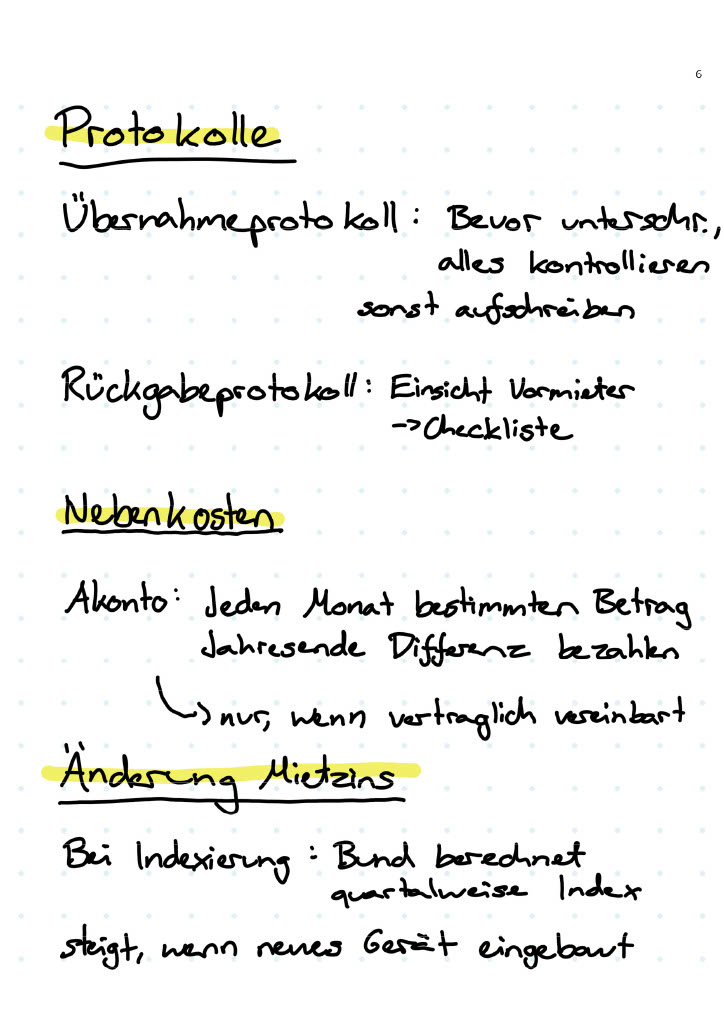 6
Protokolle
Übernahmeprotokoll: Bevor unterschr.,
alles kontrollieren
sonst aufschreiben
Rückgabeprotokoll: Einsicht Vormieter
→Checkliste
Nebenkosten
Akonto: Jeden Monat bestimmten Betrag
Jahresende Differenz bezahlen
↳ nur, wenn vertraglich vereinbart
Änderung Mietzins
Bei Indexierung: Bund berechnet
quartalweise Index
steigt, wenn neues Gerät eingebaut